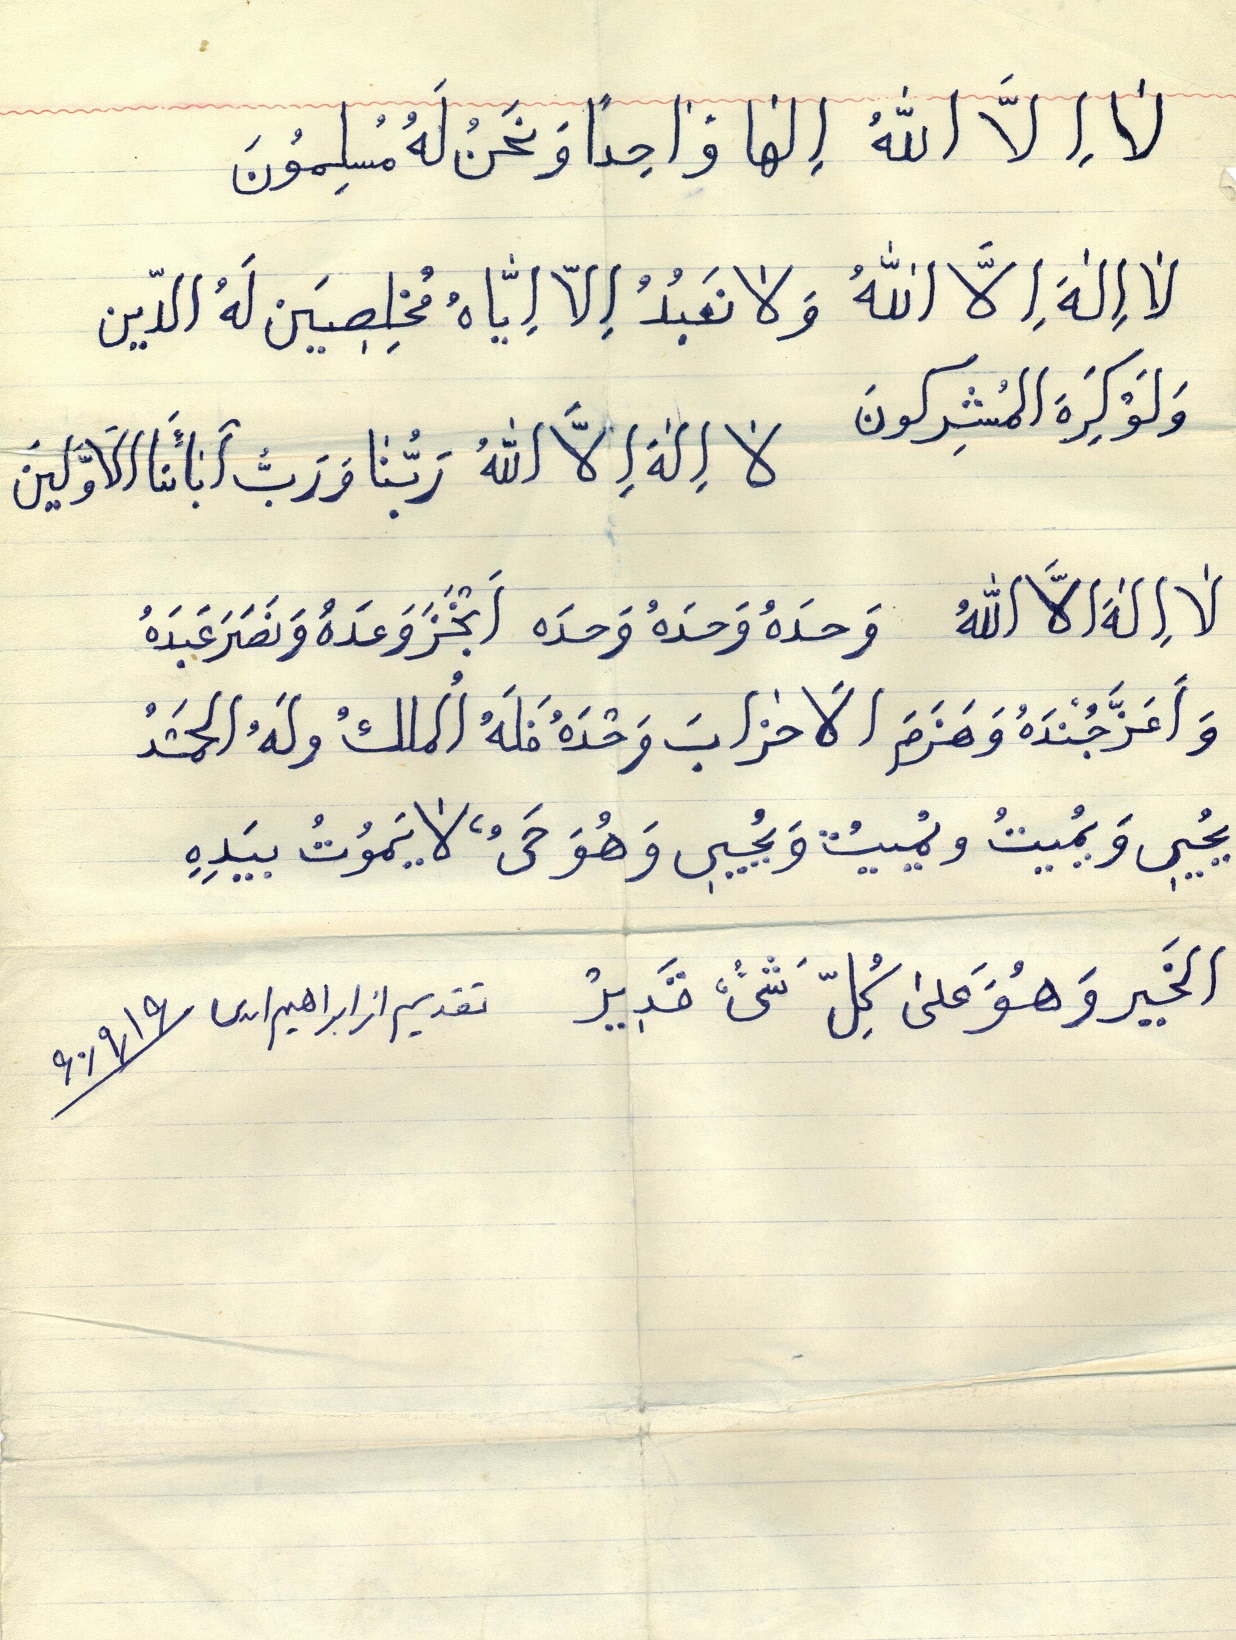 لا اِلاَّ اللهُ اِلٰهًا وَاحِدًا وَنَحنُ لَهُ مُسلِمُونَ
لا اِلٰهَ اِلاَّ اللهُ وَلا نَعبُدُ اِلاّ اِيّاهُ مُخلِصِينَ لَهُ الدّين
وَلَوْ كَرِهَ المُشرِكونَ
لا اِلٰهَ اِلاَّ اللهُ رَبُّنا وَ رَبُّ آبائَنا الاَوَّلينَ
لا اِلٰهَ الاَّ اللهُ وَحدَهُ وَحدَهُ وَحدَه اَنْجَزَ وَعدَهُ وَ نَصَرَ عَبدَهُ
وَ اَعَزَّ جُنْدَهُ وَ هَزَمَ الاَحزابَ وَحْدَهُ فَلَهُ المُلكُ ولَهُ الحَمْدُ
يُحْيِي وَ يُمِيتُ ويُمِيتُ وَ يُحيِي وَ هُوَ حَىٌ لا يَمُوتُ بِيَدِهِ
الخَيِر وَ هُوَ عَلىٰ كُلِّ شَىْءٌ قَدِيرٌ تقدیم از ابراهیم
۶۰،۹،۱۶